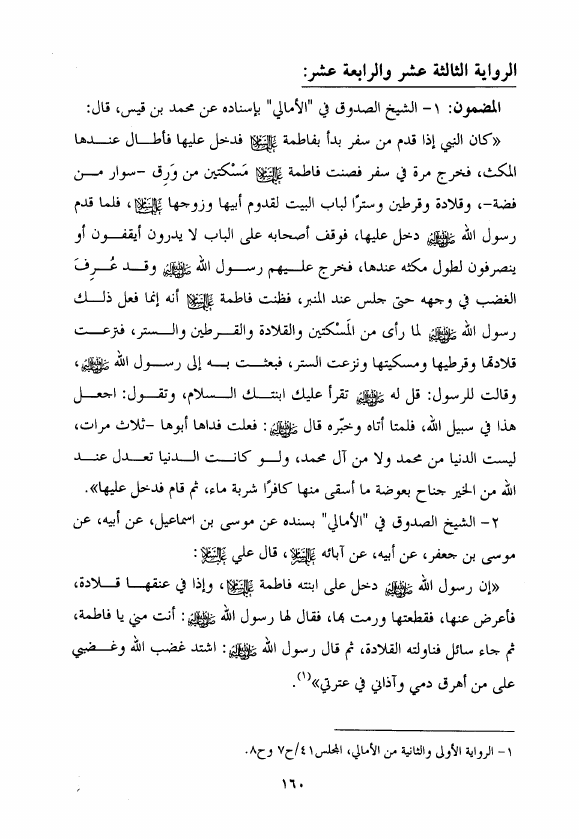 الرواية الثالثة عشر والرابعة عشر:
المضمون: ١- الشيخ الصدوق في "الأمالي" بإسناده عن محمد بن قيس، قال:
«كان النبي إذا قدم من سفر بدأ بفاطمة عليها السلام فدخل عليها فأطال عندها
المكث، فخرج مرة في سفر فصنت فاطمة عليها السلام مَسْكتين من وَرِق -سوار من
فضة-، وقلادة وقرطين وسترًا لباب البيت لقدوم أبيها وزوجها عليهما السلام، فلما قدم
رسول الله ﷺ دخل عليها، فوقف أصحابه على الباب لا يدرون أيقفون أو
ينصرفون لطول مكثه عندها، فخرج عليهم رسول الله ﷺ وقد عُرِفَ
الغضب في وجهه حتى جلس عند المنبر، فظنت فاطمة عليها السلام أنه إنما فعل ذلك
رسول الله ﷺ لما رأى من المَسْكتين والقلادة والقرطين والستر، فنزعت
قلادتها وقرطيها ومسكيتها ونزعت الستر، فبعثت به إلى رسول الله ﷺ،
وقالت للرسول: قل له ﷺ تقرأ عليك ابنتك السلام، وتقول: اجعل
هذا في سبيل الله، فلمتا أتاه وخبّره قال ﷺ: فعلت فداها أبوها -ثلاث مرات،
ليست الدنيا من محمد ولا من آل محمد، ولو كانت الدنيا تعدل عند
الله من الخير جناح بعوضة ما أسقى منها كافرًا شربة ماء، ثم قام فدخل عليها».
٢- الشيخ الصدوق في "الأمالي" بسنده عن موسى بن اسماعيل، عن أبيه، عن
موسى بن جعفر، عن أبيه، عن آبائه عليهم السلام، قال علي عليه السلام:
«إن رسول الله ﷺ دخل على ابنته فاطمة عليها السلام، وإذا في عنقها قلادة،
فأعرض عنها، فقطعتها ورمت بها، فقال لها رسول الله ﷺ: أنت مني يا فاطمة،
ثم جاء سائل فناولته القلادة، ثم قال رسول الله ﷺ: اشتد غضب الله وغضبي
على من أهرق دمي وآذاني في عترتي»(١).
١- الرواية الأولى والثانية من الأمالي، المجلس٤١/ح٧ وح٨.
١٦٠